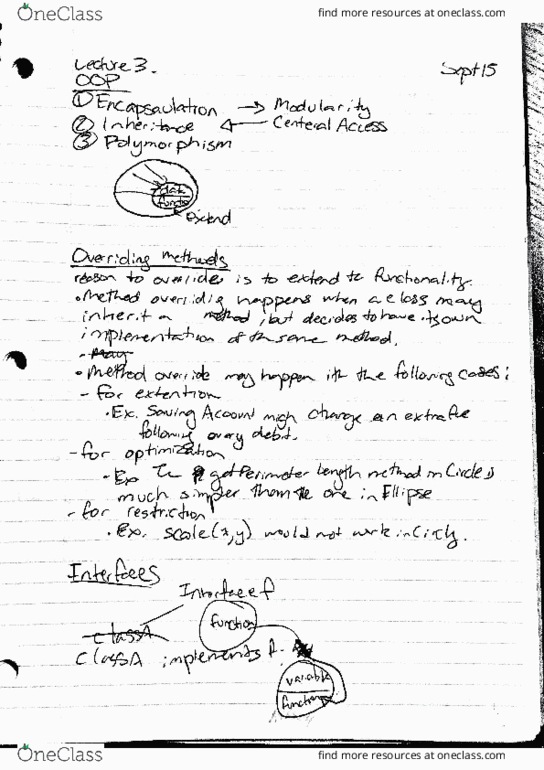 OneClass
find more resources at oneclass.com
Lecture 3.
Sept 15
OOP
① Encapsaulation → Modularity
② Inheritance ← Centeral Access
③ Polymorphism
data
functs
Extend
Overriding methods
reason to override is to extend the functionality.
• Method overriding happens when a class may
inherit a method, but decides to have its own
implementation of the same method.
- May
• Method override may happen in the following cases:
- for extention
• Ex. Saving Account migh charge an extra fee
following every debit.
- for optimization
• Ex The getPerimeter Length method in Circle is
much simpler than the one in Ellipse
- for restriction
• Ex. scale(x,y) would not work in Circly.
Interfaces
Interface f
function
class A
class A implements A.
variable
function
OneClass
find more resources at oneclass.com